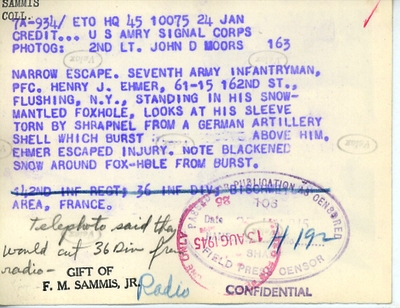 SAMMIS
COLL.
7A-934/ ETO HQ 45 10075 24 JAN
CREDIT... U S AMRY SIGNAL CORPS
PHOTOG: 2ND LT. JOHN D MOORS 163
NARROW ESCAPE. SEVENTH ARMY INFANTRYMAN,
PFC. HENRY J. EHMER, 61-15 162ND ST.,
FLUSHING, N.Y., STANDING IN HIS SNOW-
MANTLED FOXHOLE, LOOKS AT HIS SLEEVE
TORN BY SHRAPNEL FROM A GERMAN ARTILLERY
SHELL WHICH BURST ABOVE HIM.
EHMER ESCAPED INJURY. NOTE BLACKENED
SNOW AROUND FOX-HOLE FROM BURST.
142ND INF REGT, 36 INF DIV,
AREA, FRANCE.
PUBLICATION AS CENSORED
108
Date
1 AUG 1945
H192
SHA
FIELD PRESS CENSOR
USE ONLY
telephoto said they
would cut 36 Div from
radio-
GIFT OF
F. M. SAMMIS, JR.
Radio
CONFIDENTIAL